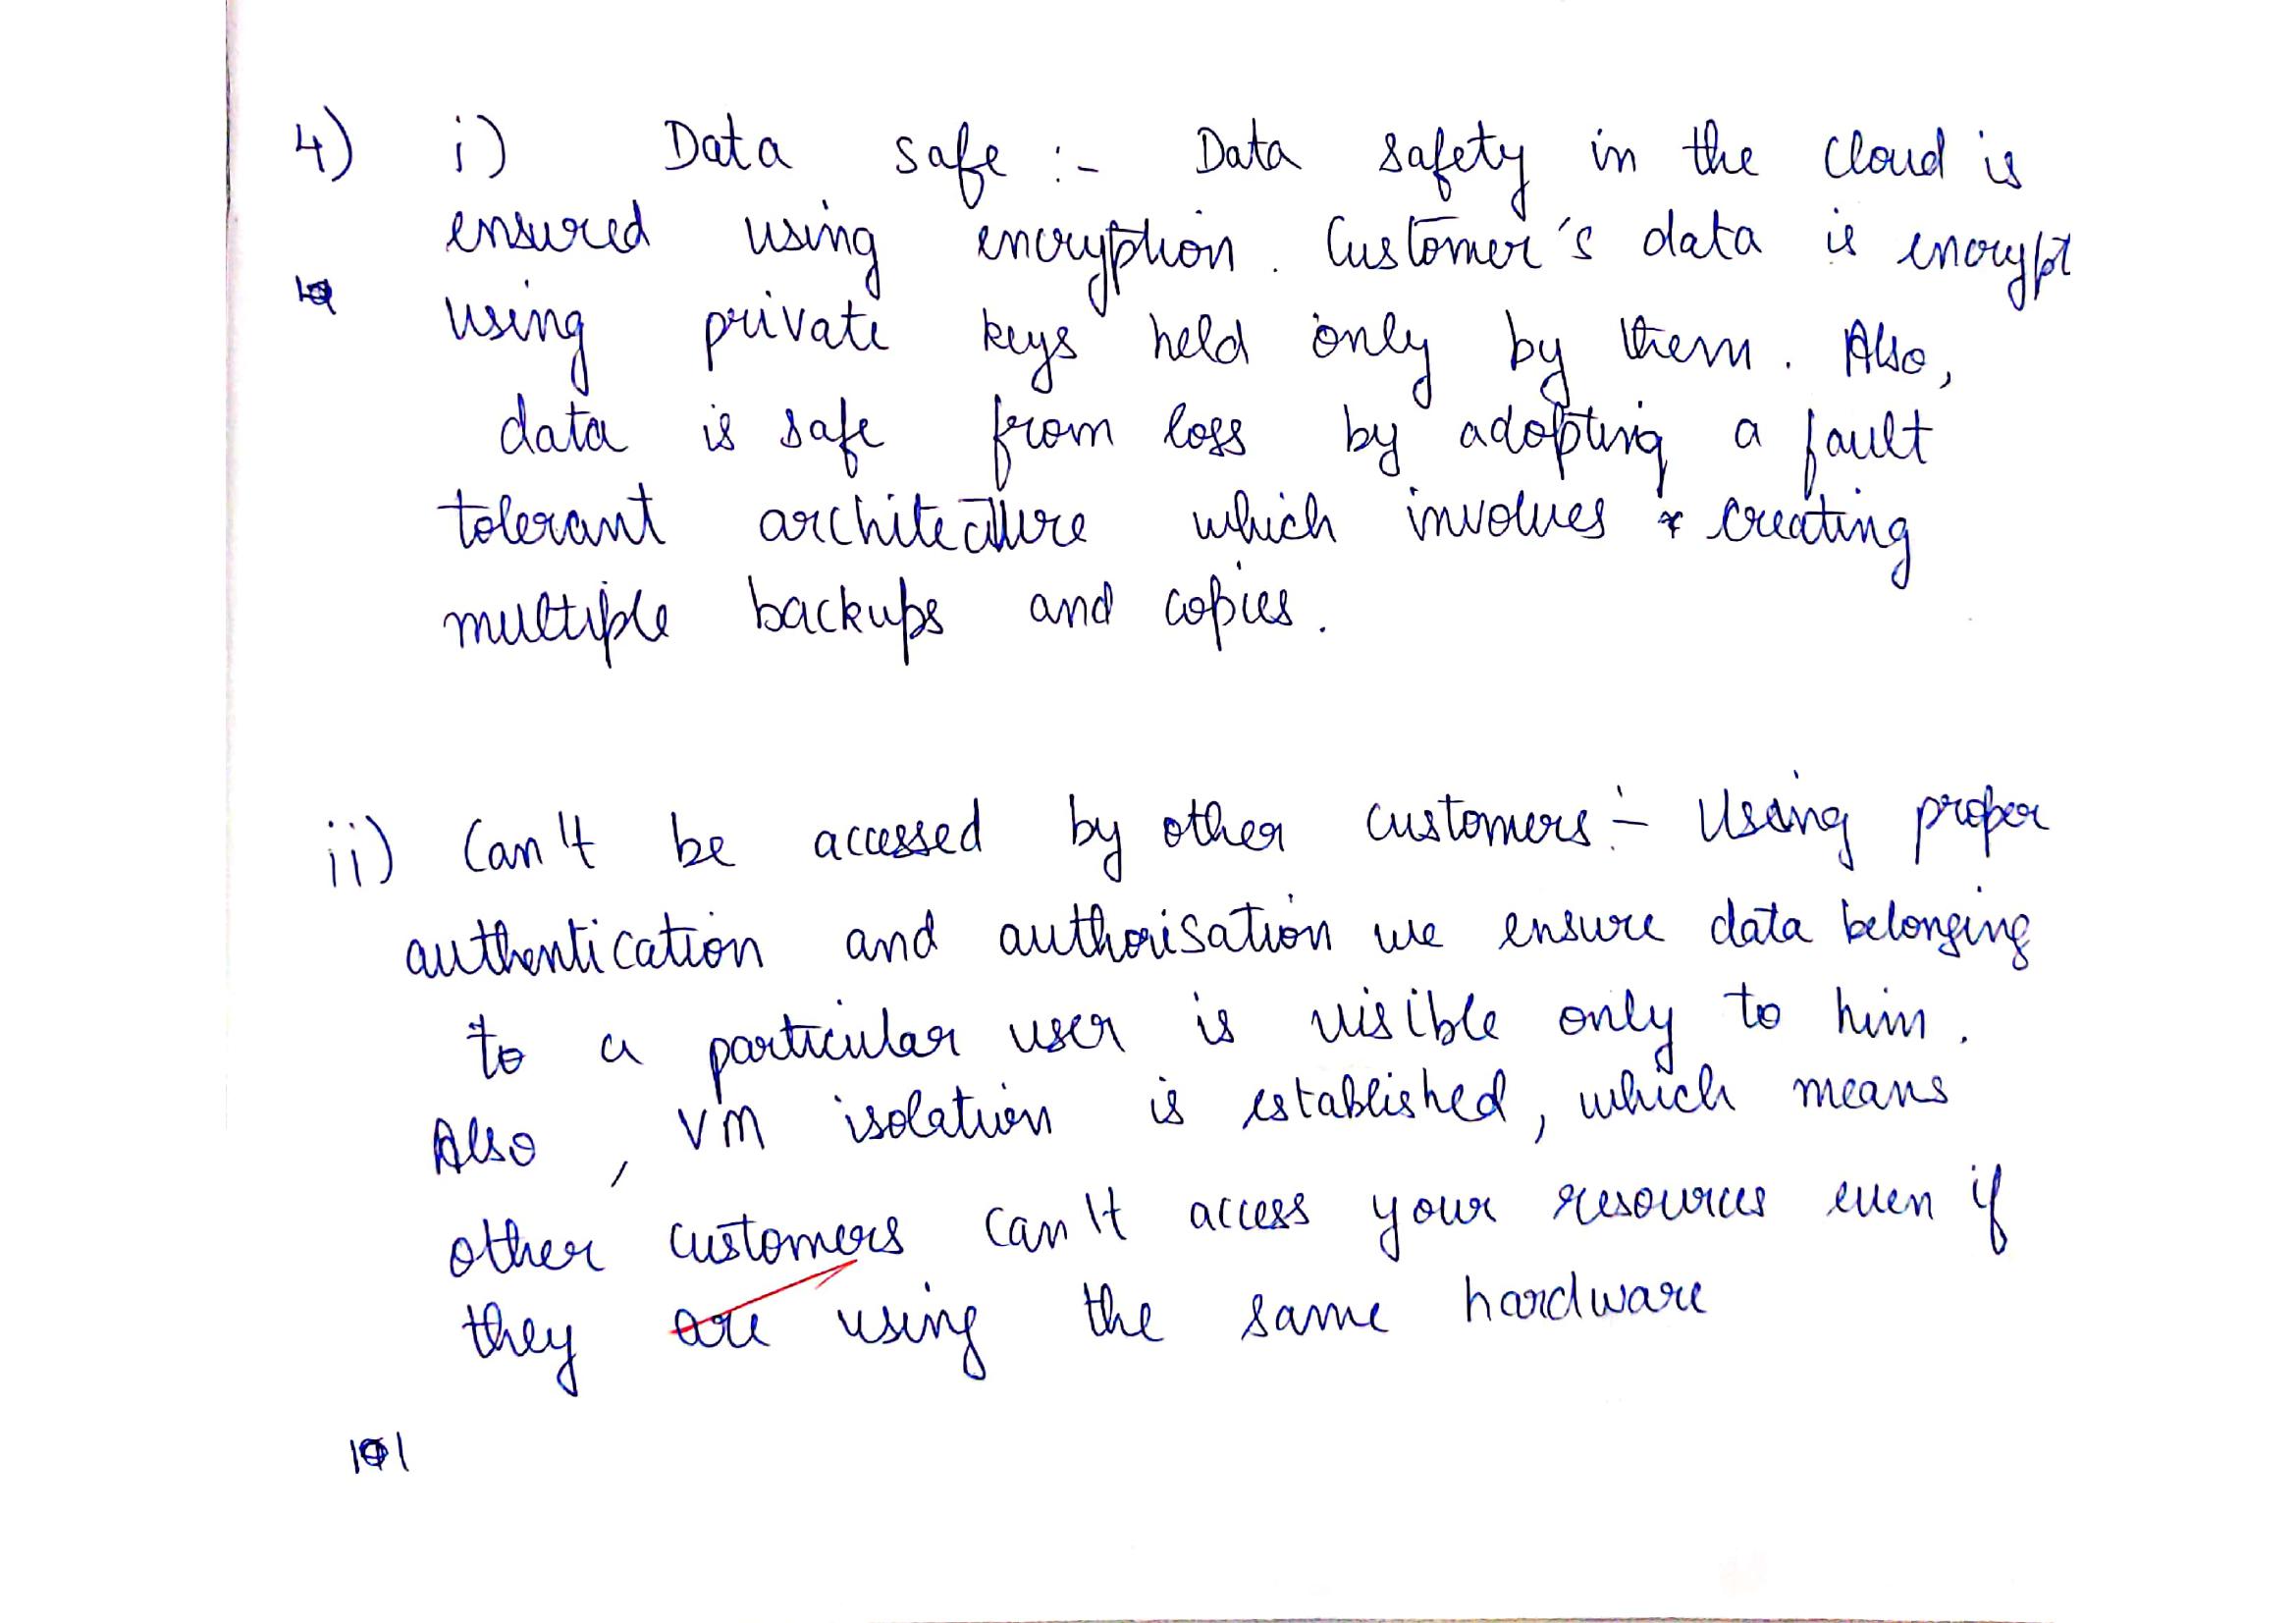 4) i) Data safe :- Data safety in the cloud is
ensured using encryption. Customer's data is encrypt
using private keys held only by them. Also,
data is safe from loss by adopting a fault
tolerant architecture which involves creating
multiple backups and copies.
ii) Can't be accessed by other customers :- Using proper
authentication and authorisation we ensure data belonging
to a particular user is visible only to him.
Also, VM isolation is established, which means
other customers can't access your resources even if
they are using the same hardware